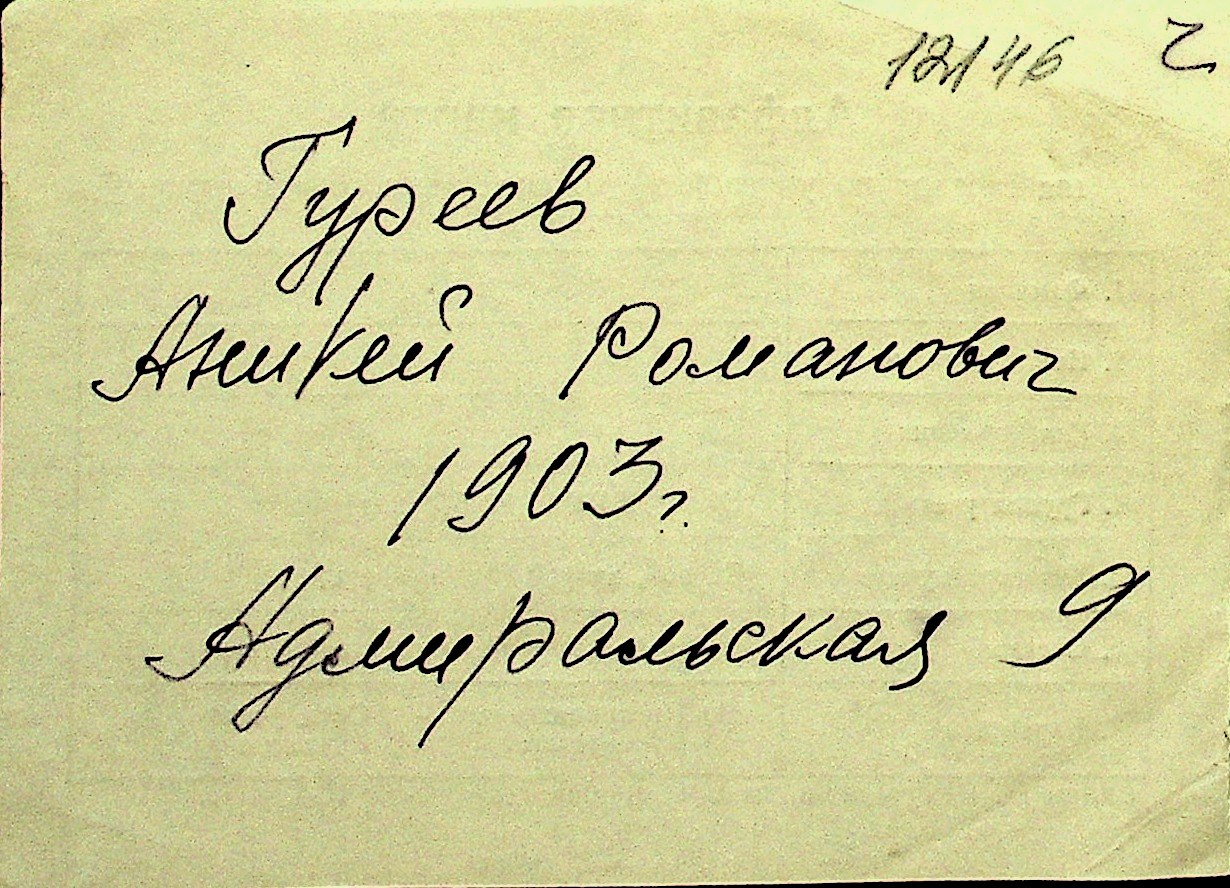 12146 ч
Гуреев
Аникей Романович
1903 г.
Адмиральская 9